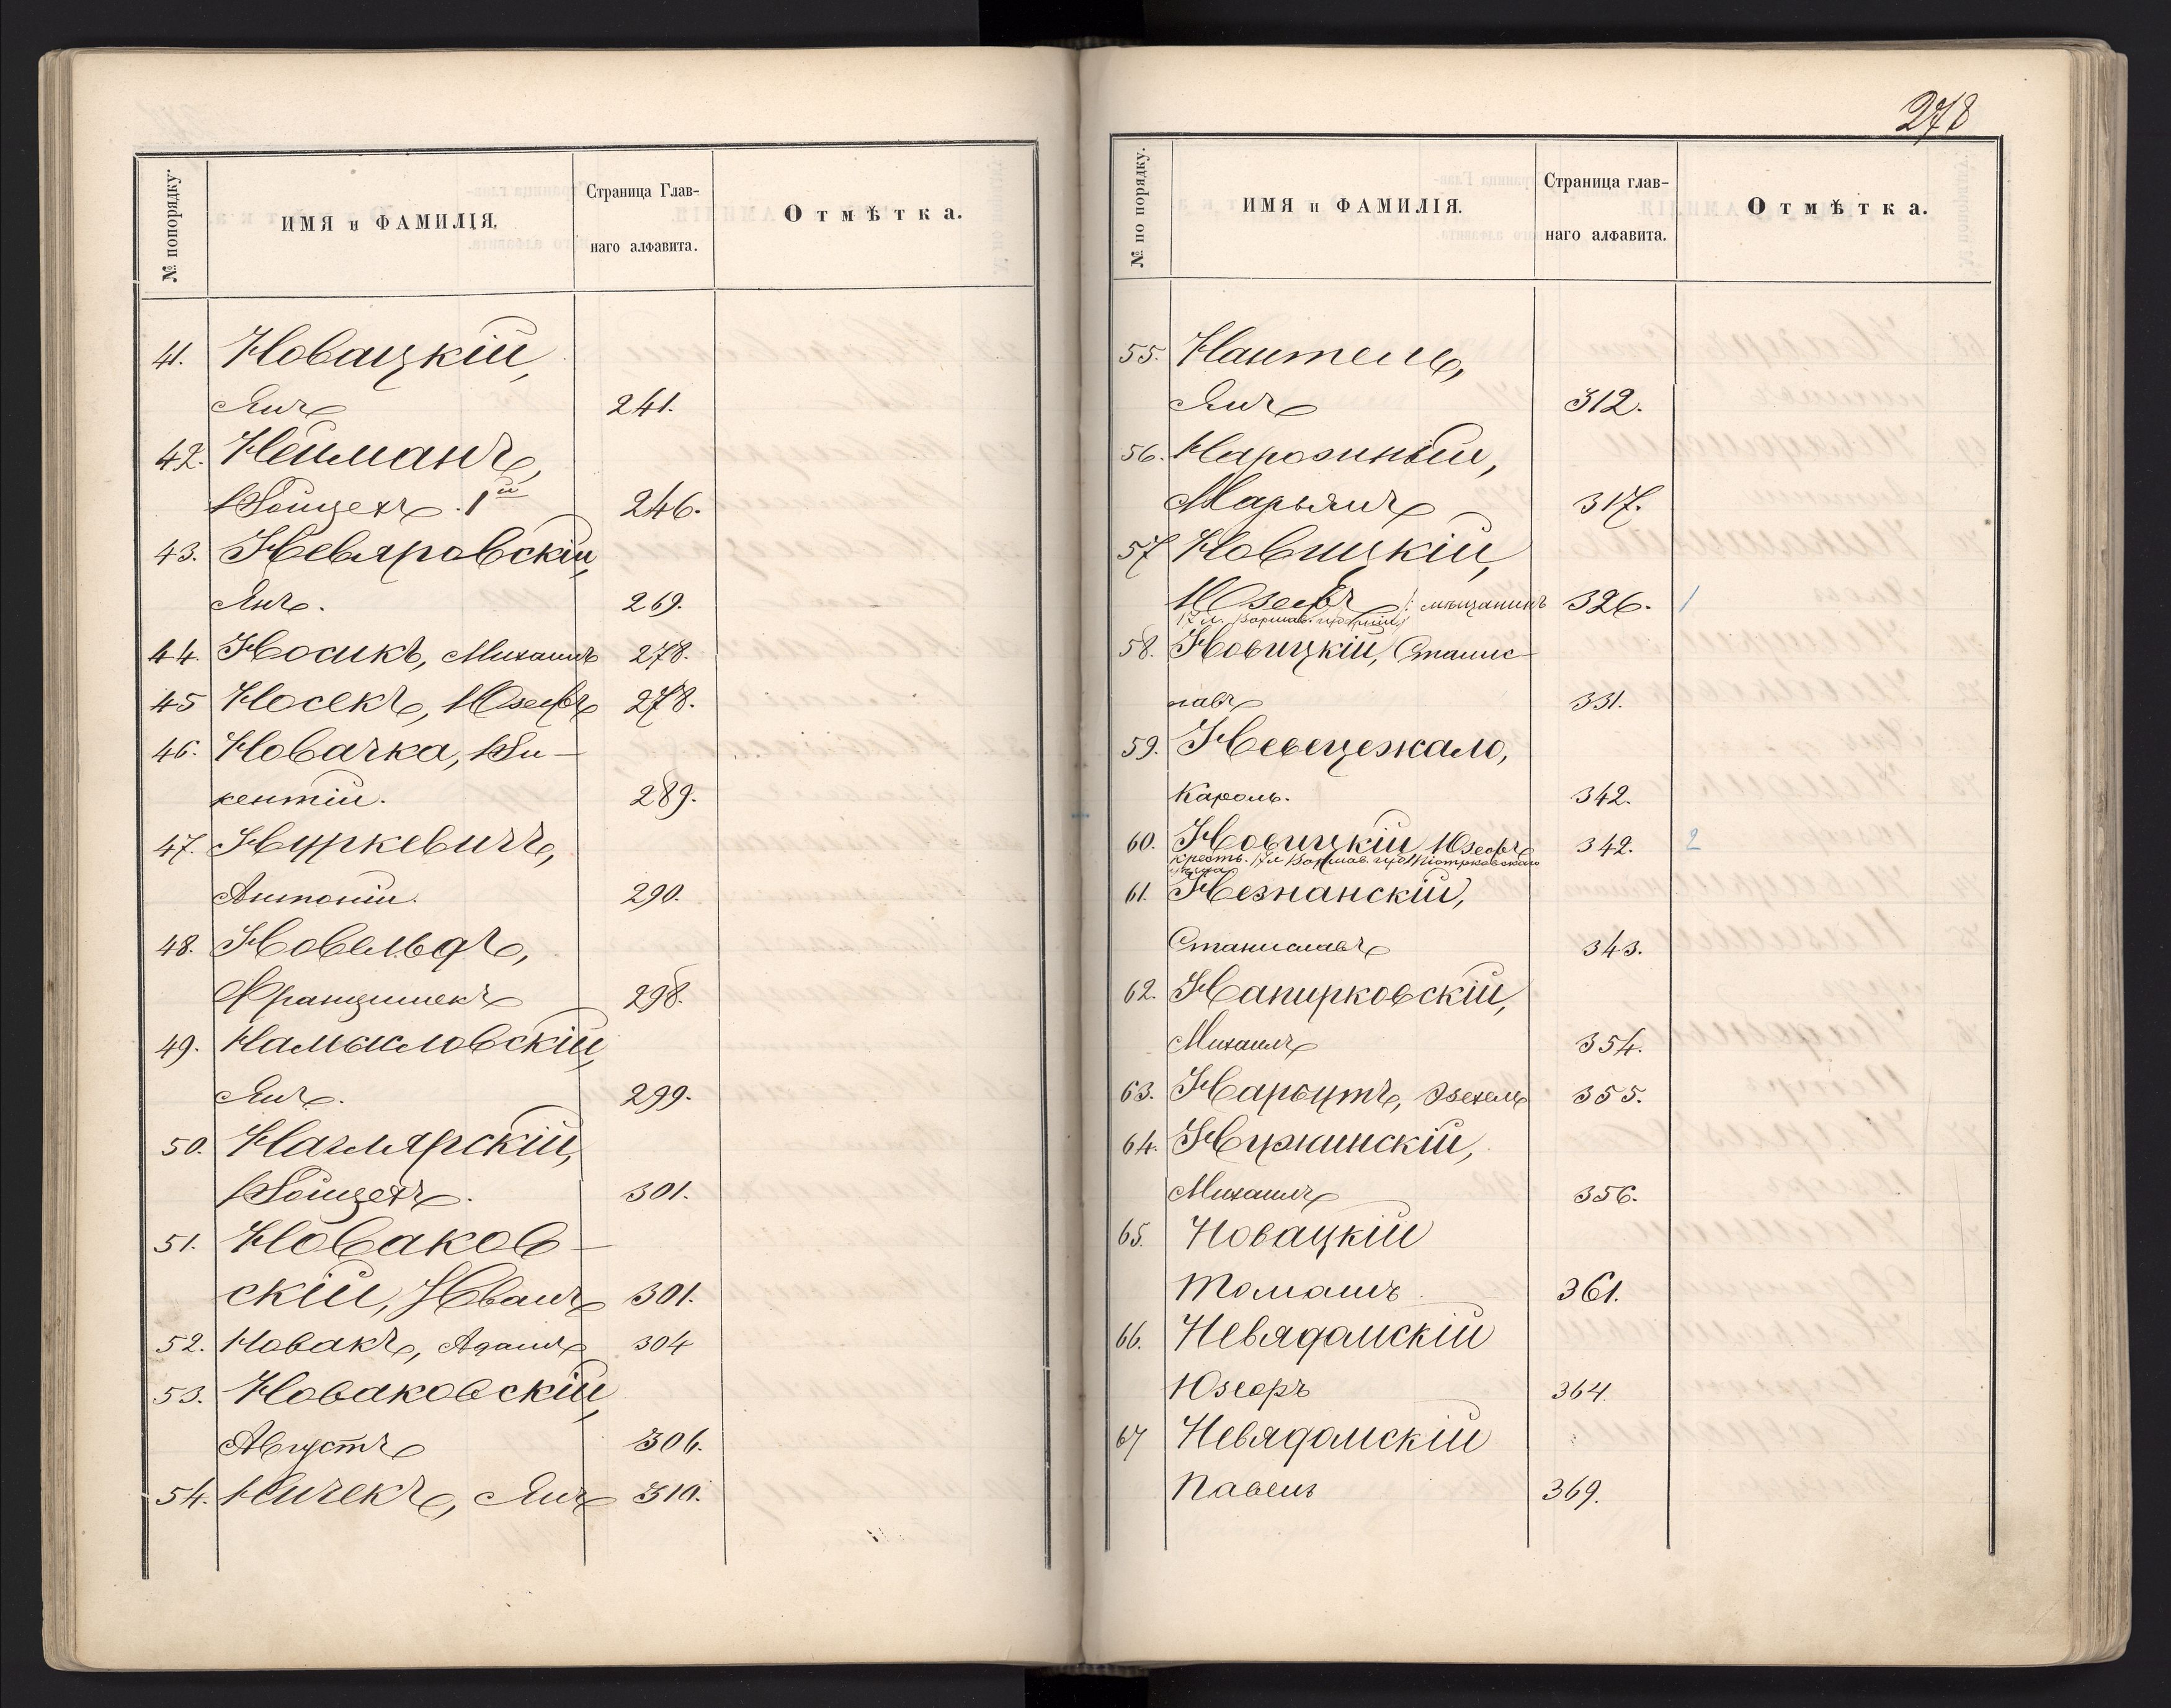 № попорядку.
ИМЯ и ФАМИЛІЯ.
Страница Глав-
наго алфавита.
Отмѣтка.
41. Новацкій,
Янъ 241.
42. Нейманъ,
Войцехъ 1й 246.
43. Невяровскій,
Янъ. 269.
44. Носикъ, Михаилъ 278.
45 Носекъ, Юзефъ 278.
46. Новачка, Ви-
кентій. 289.
47. Нуркевичъ,
Антоній. 290.
48. Новельдъ,
Францишекъ 298.
49. Намысловскій,
Янъ. 299.
50. Наглярскій,
Войцехъ. 301.
51. Новаков-
скій, Иванъ 301.
52. Новакъ, Адамъ 304
53. Новаковскій,
Августъ 306.
54. Ничекъ, Янъ 310.
278
№ по порядку.
ИМЯ и ФАМИЛІЯ.
Страница глав-
наго алфавита.
Отмѣтка.
55. Нантель,
Янъ 312.
56. Нарожный,
Марьянъ 317.
57 Новицкій,
Юзефъ /: мѣщанинъ 326. 1
17 л. Варшав. губерніи
58. Новицкій, Станис-
лавъ 331.
59. Невецежало,
Кароль. 342.
60. Новицкій Юзефъ 342. 2
крест. 17 л Варшав. губ Піотрковскаго
уѣзда
61. Незнанскій,
Станиславъ 343.
62. Напирковскій,
Михаилъ 354.
63. Нарбутъ, Эзехель 355.
64. Нужинскій,
Михаилъ 356.
65. Новацкій
Томашъ 361.
66. Невядомскій
Юзефъ 364.
67 Невядомскій
Павелъ 369.